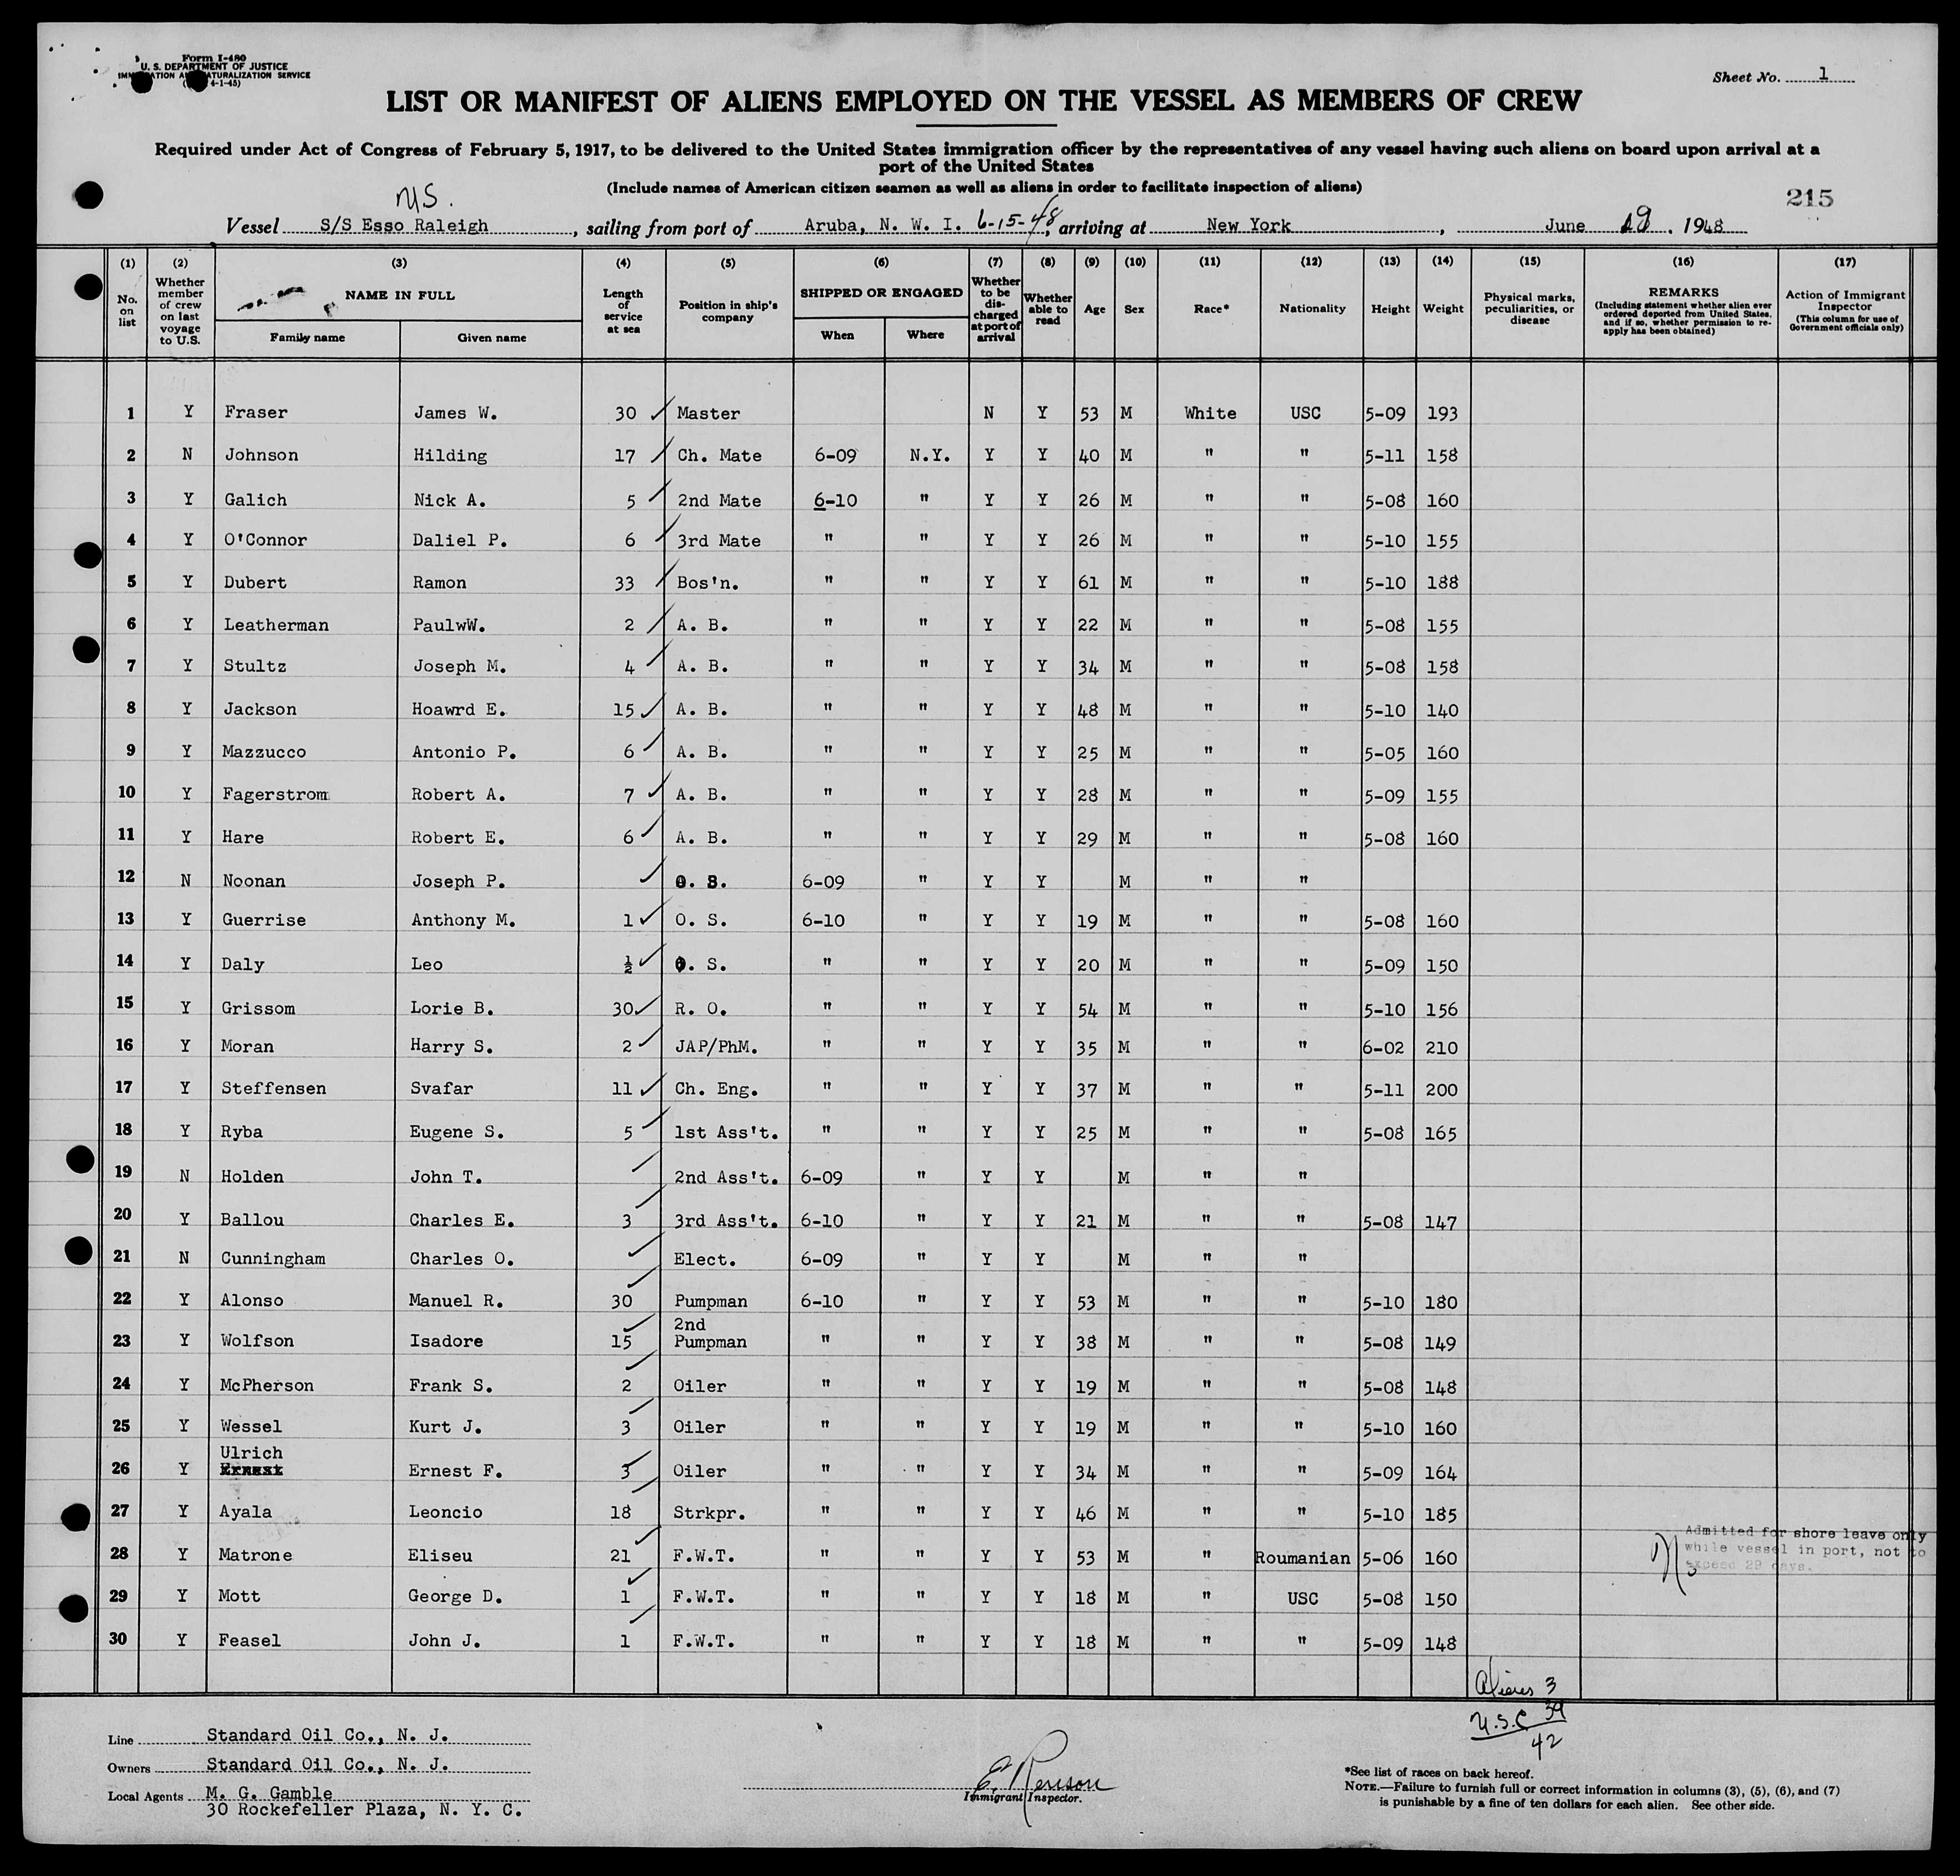 Form I-480
U. S. DEPARTMENT OF JUSTICE
IMMIGRATION AND NATURALIZATION SERVICE
4-1-45)
Sheet No. 1
LIST OR MANIFEST OF ALIENS EMPLOYED ON THE VESSEL AS MEMBERS OF CREW
Required under Act of Congress of February 5, 1917, to be delivered to the United States immigration officer by the representatives of any vessel having such aliens on board upon arrival at a
port of the United States
(Include names of American citizen seamen as well as aliens in order to facilitate inspection of aliens)
215
Vessel S/S Esso Raleigh, sailing from port of Aruba, N. W. I. 6-15-48, arriving at New York, June 19, 1948
(1) (2) (3) (4) (5) (6) (7) (8) (9) (10) (11) (12) (13) (14) (15) (16) (17)
No. on list
Whether member of crew on last voyage to U.S.
NAME IN FULL
Family name Given name
Length of service at sea
Position in ship's company
SHIPPED OR ENGAGED
When Where
Whether to be discharged at port of arrival
Whether able to read
Age
Sex
Race*
Nationality
Height
Weight
Physical marks, peculiarities, or disease
REMARKS
(Including statement whether alien ever ordered deported from United States, and if so, whether permission to re-apply has been obtained)
Action of Immigrant Inspector
(This column for use of Government officials only)
1 Y Fraser James W. 30 Master N Y 53 M White USC 5-09 193
2 N Johnson Hilding 17 Ch. Mate 6-09 N.Y. Y Y 40 M " " 5-11 158
3 Y Galich Nick A. 5 2nd Mate 6-10 " Y Y 26 M " " 5-08 160
4 Y O'Connor Daliel P. 6 3rd Mate " " Y Y 26 M " " 5-10 155
5 Y Dubert Ramon 33 Bos'n. " " Y Y 61 M " " 5-10 188
6 Y Leatherman PaulwW. 2 A. B. " " Y Y 22 M " " 5-08 155
7 Y Stultz Joseph M. 4 A. B. " " Y Y 34 M " " 5-08 158
8 Y Jackson Hoawrd E. 15 A. B. " " Y Y 48 M " " 5-10 140
9 Y Mazzucco Antonio P. 6 A. B. " " Y Y 25 M " " 5-05 160
10 Y Fagerstrom Robert A. 7 A. B. " " Y Y 28 M " " 5-09 155
11 Y Hare Robert E. 6 A. B. " " Y Y 29 M " " 5-08 160
12 N Noonan Joseph P. O. S. 6-09 " Y Y M " "
13 Y Guerrise Anthony M. 1 O. S. 6-10 " Y Y 19 M " " 5-08 160
14 Y Daly Leo ½ O. S. " " Y Y 20 M " " 5-09 150
15 Y Grissom Lorie B. 30 R. O. " " Y Y 54 M " " 5-10 156
16 Y Moran Harry S. 2 JAP/PhM. " " Y Y 35 M " " 6-02 210
17 Y Steffensen Svafar 11 Ch. Eng. " " Y Y 37 M " " 5-11 200
18 Y Ryba Eugene S. 5 1st Ass't. " " Y Y 25 M " " 5-08 165
19 N Holden John T. 2nd Ass't. 6-09 " Y Y M " "
20 Y Ballou Charles E. 3 3rd Ass't. 6-10 " Y Y 21 M " " 5-08 147
21 N Cunningham Charles O. Elect. 6-09 " Y Y M " "
22 Y Alonso Manuel R. 30 Pumpman 6-10 " Y Y 53 M " " 5-10 180
23 Y Wolfson Isadore 15 2nd Pumpman " " Y Y 38 M " " 5-08 149
24 Y McPherson Frank S. 2 Oiler " " Y Y 19 M " " 5-08 148
25 Y Wessel Kurt J. 3 Oiler " " Y Y 19 M " " 5-10 160
26 Y Ulrich Ernest Ernest F. 3 Oiler " " Y Y 34 M " " 5-09 164
27 Y Ayala Leoncio 18 Strkpr. " " Y Y 46 M " " 5-10 185
28 Y Matrone Eliseu 21 F.W.T. " " Y Y 53 M " Roumanian 5-06 160
Admitted for shore leave only
while vessel in port, not to
exceed 29 days.
29 Y Mott George D. 1 F.W.T. " " Y Y 18 M " USC 5-08 150
30 Y Feasel John J. 1 F.W.T. " " Y Y 18 M " " 5-09 148
Aliens 3
U.S.C 39
42
Line Standard Oil Co., N. J.
Owners Standard Oil Co., N. J.
Local Agents M. G. Gamble
30 Rockefeller Plaza, N. Y. C.
Immigrant Inspector.
*See list of races on back hereof.
NOTE.—Failure to furnish full or correct information in columns (3), (5), (6), and (7)
is punishable by a fine of ten dollars for each alien. See other side.